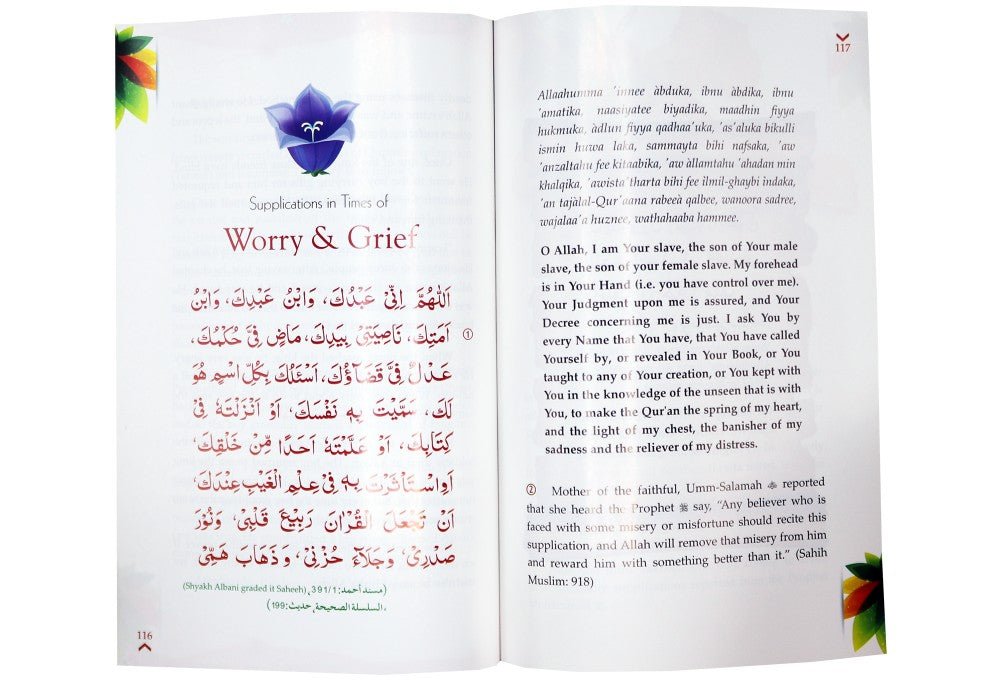 Supplications in Times of
Worry & Grief
اَللّٰهُمَّ اِنِّىْ عَبْدُكَ، وَابْنُ عَبْدِكَ، وَابْنُ
① اَمَتِكَ، نَاصِيَتِىْ بِيَدِكَ، مَاضٍ فِىَّ حُكْمُكَ،
عَدْلٌ فِىَّ قَضَآؤُكَ، اَسْئَلُكَ بِكُلِّ اسْمٍ هُوَ
لَكَ، سَمَّيْتَ بِهٖ نَفْسَكَ، اَوْ اَنْزَلْتَهٗ فِىْ
كِتَابِكَ، اَوْ عَلَّمْتَهٗ اَحَدًا مِّنْ خَلْقِكَ،
اَوِاسْتَاْثَرْتَ بِهٖ فِىْ عِلْمِ الْغَيْبِ عِنْدَكَ،
اَنْ تَجْعَلَ الْقُرْاٰنَ رَبِيْعَ قَلْبِىْ، وَنُوْرَ
صَدْرِىْ، وَجَلَاءَ حُزْنِىْ، وَذَهَابَ هَمِّىْ
(مسند أحمد: 391/1، (Shyakh Albani graded it Saheeh)
السلسلة الصحيحة، حديث: 199)
116
117
Allaahumma 'innee àbduka, ibnu àbdika, ibnu
'amatika, naasiyatee biyadika, maadhin fiyya
hukmuka, àdlun fiyya qadhaa'uka, 'as'aluka bikulli
ismin huwa laka, sammayta bihi nafsaka, 'aw
'anzaltahu fee kitaabika, 'aw àllamtahu 'ahadan min
khalqika, 'awista'tharta bihi fee ilmil-ghaybi indaka,
'an tajàlal-Qur'aana rabeeà qalbee, wanoora sadree,
wajalaa'a huznee, wathahaaba hammee.
O Allah, I am Your slave, the son of Your male
slave, the son of your female slave. My forehead
is in Your Hand (i.e. you have control over me).
Your Judgment upon me is assured, and Your
Decree concerning me is just. I ask You by
every Name that You have, that You have called
Yourself by, or revealed in Your Book, or You
taught to any of Your creation, or You kept with
You in the knowledge of the unseen that is with
You, to make the Qur'an the spring of my heart,
and the light of my chest, the banisher of my
sadness and the reliever of my distress.
② Mother of the faithful, Umm-Salamah reported
that she heard the Prophet ﷺ say, "Any believer who is
faced with some misery or misfortune should recite this
supplication, and Allah will remove that misery from him
and reward him with something better than it." (Sahih
Muslim: 918)